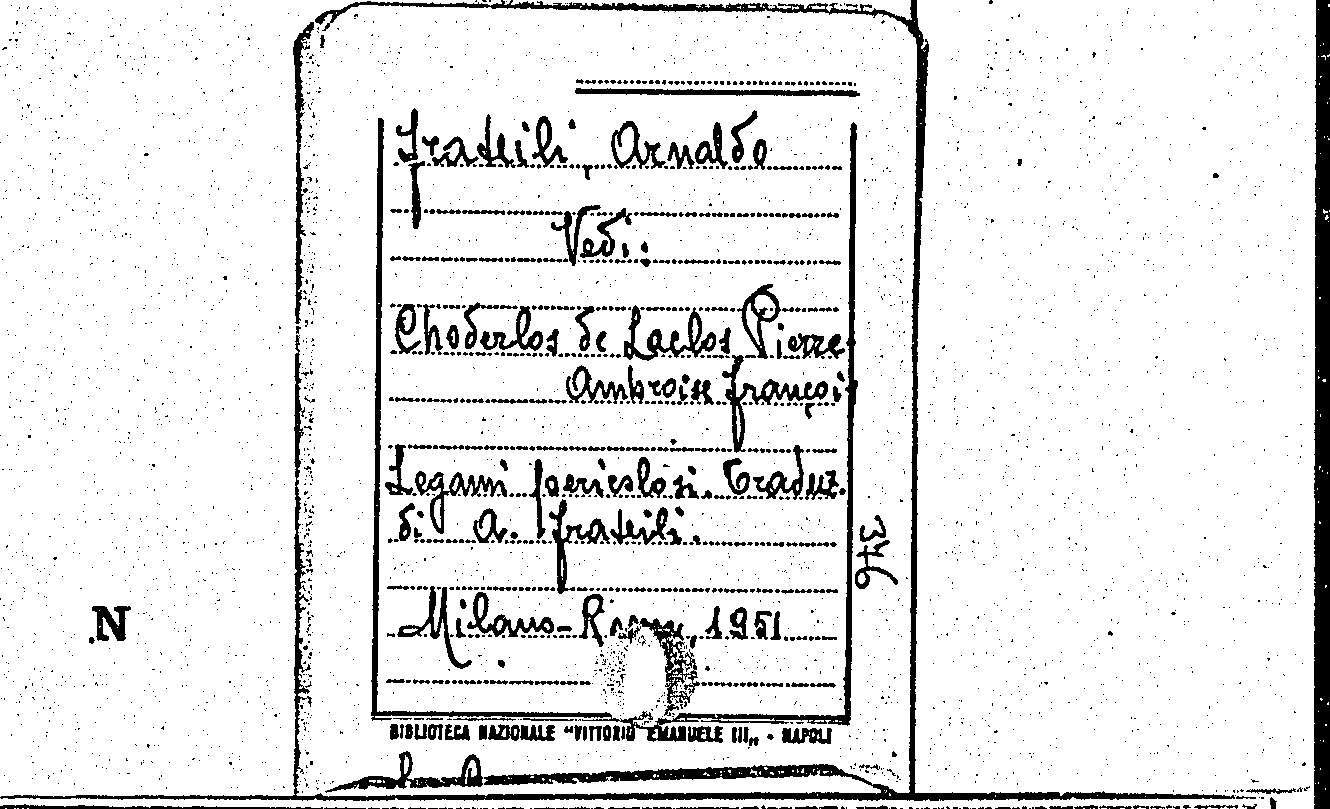 Frateili, Arnaldo
Vedi:
Choderlos de Laclos Pierre
Ambroise François
Legami pericolosi. Traduz.
di A. Frateili.
Milano-Roma, 1951
346
N
BIBLIOTECA NAZIONALE "VITTORIO EMANUELE III„ - NAPOLI